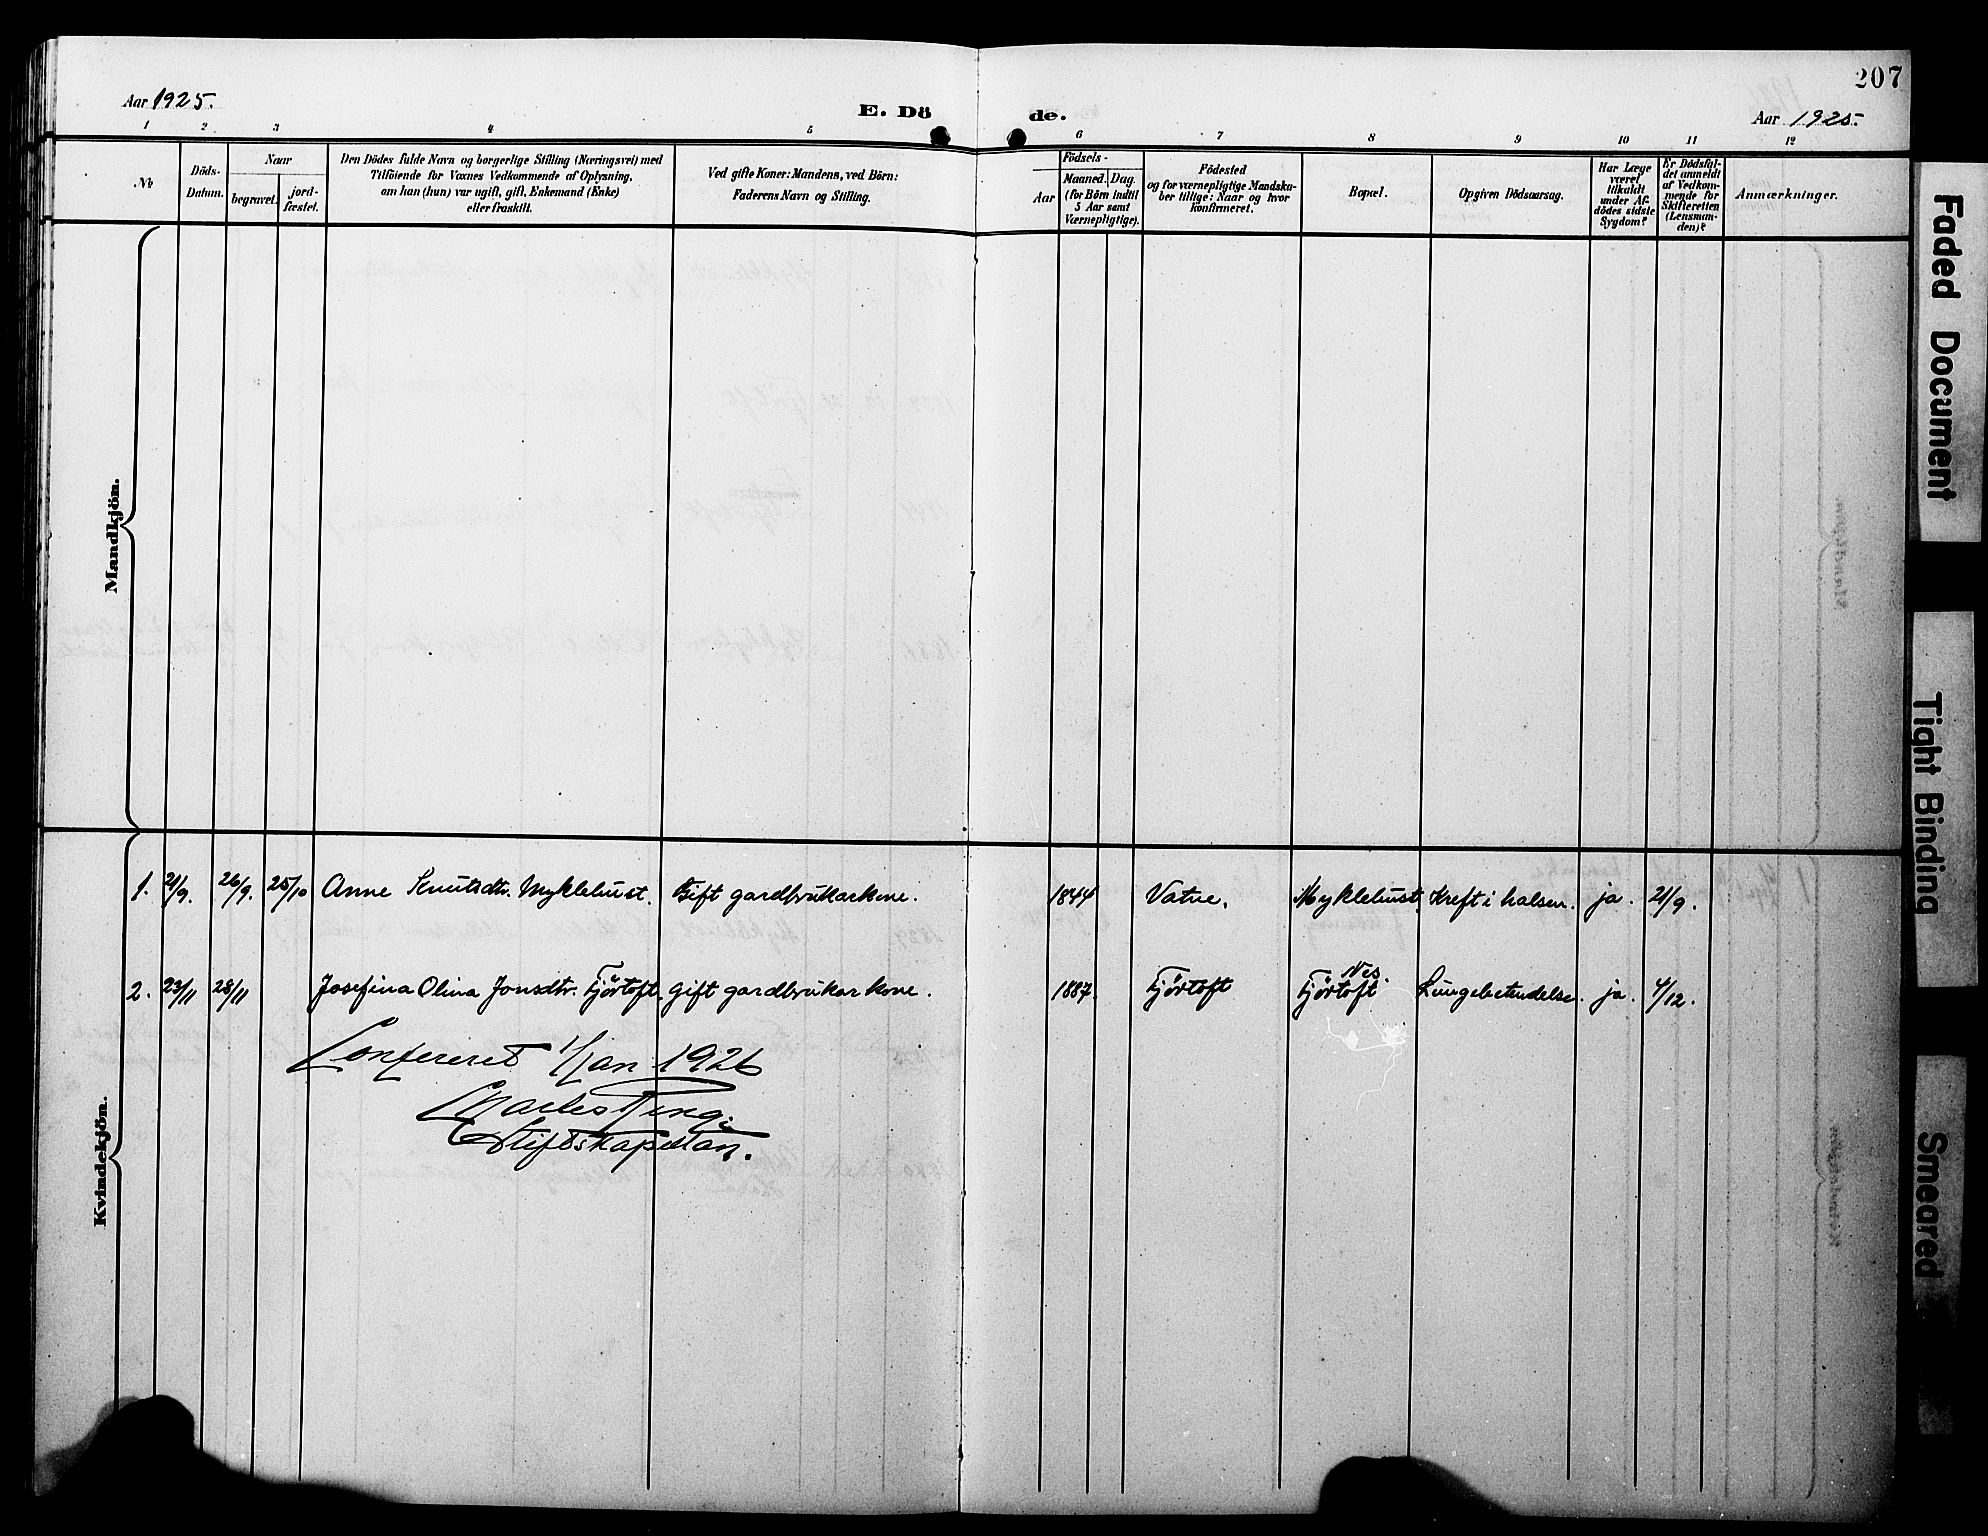 207
Aar 1925.
E. Döde.
Aar 1925.
1 2 3 4 5 6 7 8 9 10 11 12
No
Döds-
Datum.
Naar
begravet.
jord-
fæstet.
Den Dödes fulde Navn og borgerlige Stilling (Næringsvei) med
Tilföiende for Voxnes Vedkommende af Oplysning,
om han (hun) var ugift, gift, Enkemand (Enke)
eller fraskilt.
Ved gifte Koner: Mandens, ved Börn:
Faderens Navn og Stilling.
Födsels-
Aar
Maaned. Dag.
(for Börn indtil
5 Aar samt
Værnepligtige).
Födested
og for værnepligtige Mandska-
ber tillige: Naar og hvor
konfirmeret.
Bopæl.
Opgiven Dödsaarsag.
Har Læge
været
tilkaldt
under Af-
dödes sidste
Sygdom?
Er Dödsfal-
det anmeldt
af Vedkom-
mende for
Skifteretten
(Lensman-
den)?
Anmærkninger.
Mandkjön.
Kvindekjön.
1. 21/9. 26/9. 25/10 Anne Knutsdtr. Myklebust. Gift gardbrukarkone. 1844 Vatne. Myklebust. Kreft i halsen. ja. 21/9.
2. 23/11 28/11 Josefina Olina Jonsdtr. Fjörtoft. gift gardbrukarkone. 1887. Fjörtoft Nes. Fjörtoft Lungebetendelse. ja. 4/12.
Confereret 1/jan 1926
Charles Ring.
Stiftskapellan.
Faded Document
Tight Binding
Smeared